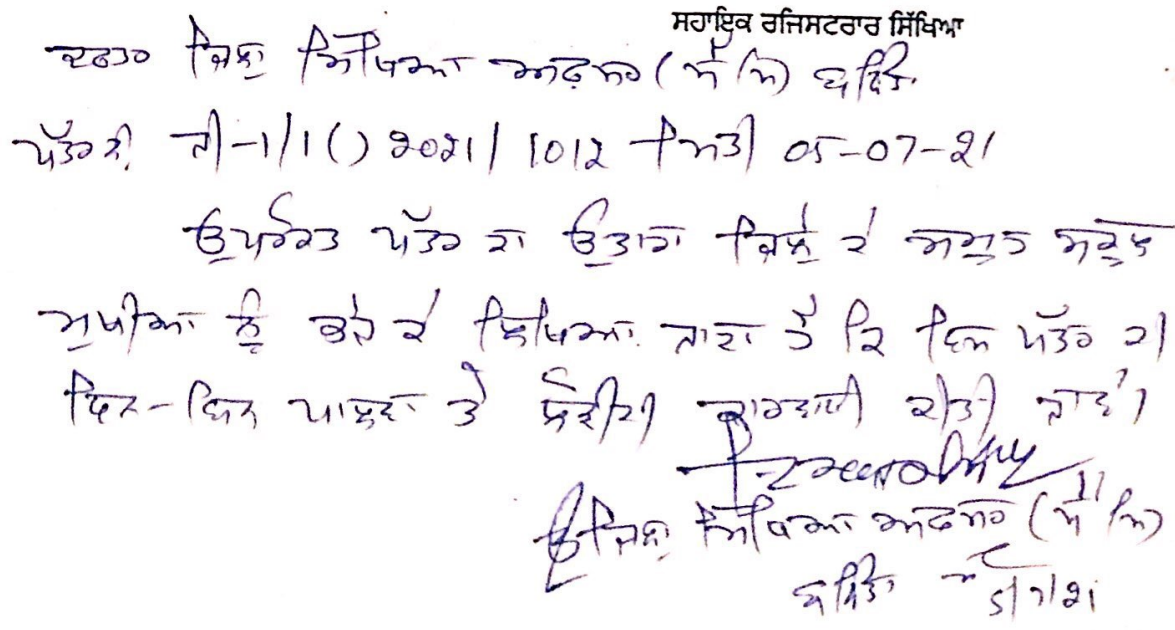 ਸਹਾਇਕ ਰਜਿਸਟਰਾਰ ਸਿੱਖਿਆ
ਦਫਤਰ ਜਿਲ੍ਹਾ ਸਿੱਖਿਆ ਅਫ਼ਸਰ (ਐ ਸਿ) ਬਠਿੰਡਾ
ਪੱਤਰ ਨੰ. ਜੀ-1/1() 2021/1012 ਮਿਤੀ 05-07-21
ਉਪਰੋਕਤ ਪੱਤਰ ਦਾ ਉਤਾਰਾ ਜਿਲ੍ਹੇ ਦੇ ਸਮੂਹ ਸਕੂਲ
ਮੁਖੀਆਂ ਨੂੰ ਭੇਜ ਕੇ ਲਿਖਿਆ ਜਾਂਦਾ ਹੈ ਕਿ ਇਸ ਪੱਤਰ ਦੀ
ਇੰਨ-ਬਿੰਨ ਪਾਲਣਾ ਤੇ ਲੋੜੀਂਦੀ ਕਾਰਵਾਈ ਕੀਤੀ ਜਾਵੇ।
ਉਪ ਜਿਲ੍ਹਾ ਸਿੱਖਿਆ ਅਫਸਰ (ਐ ਸਿ)
ਬਠਿੰਡਾ 5/7/21